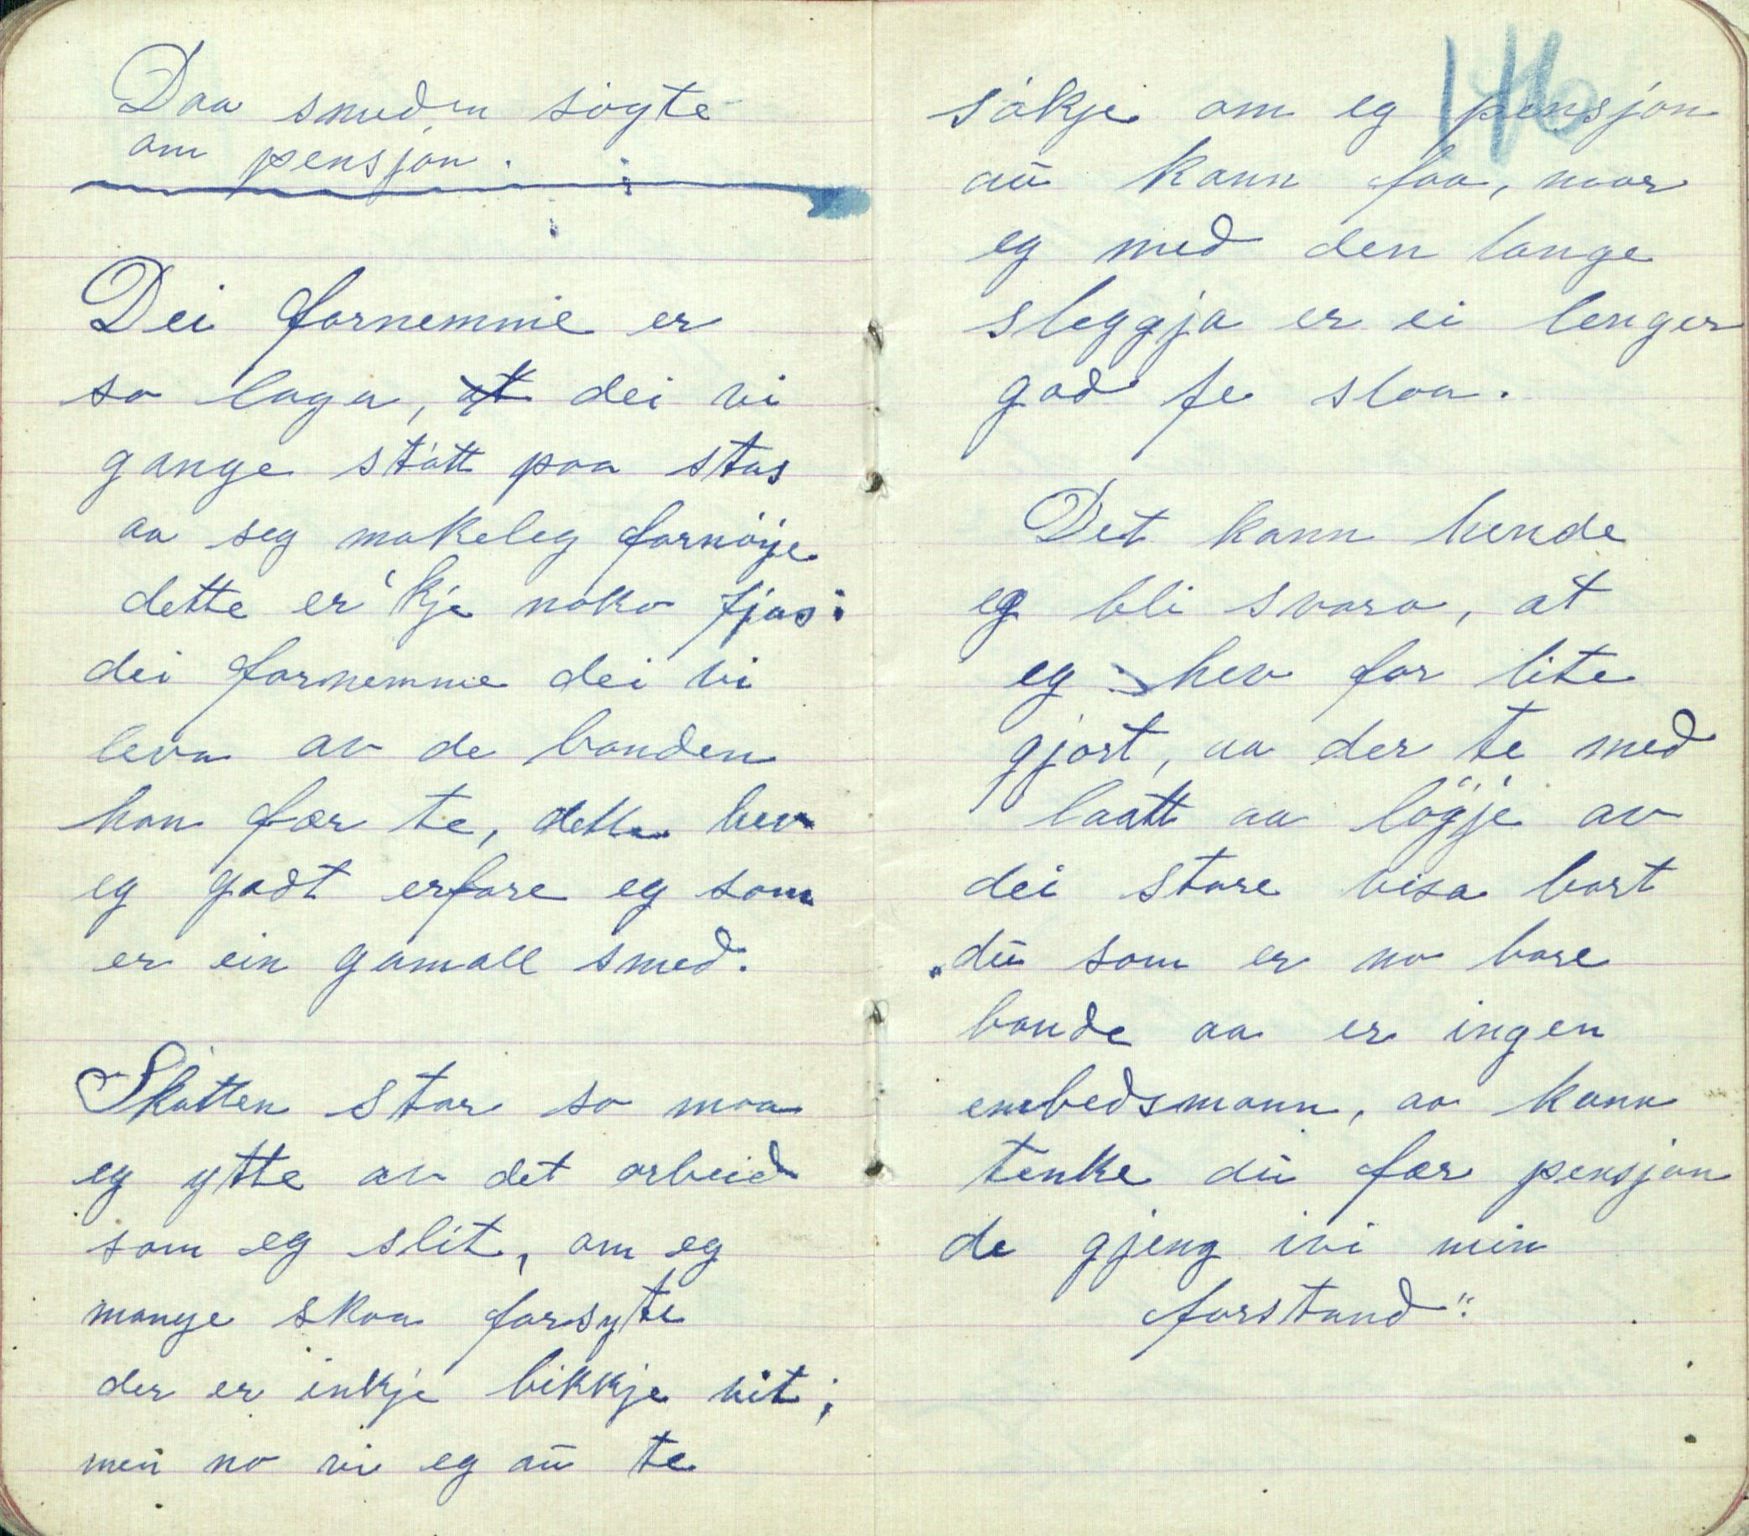 Daa smeden søgte
om pensjon.
Dei fornemme er
so laga, at dei vi
gange støtt paa stas
aa seg makeleg fornøye
dette er'kje noko fjas:
dei fornemme dei vi
leva av de bonden
han fær te, dette hev
eg godt erfare eg som
er ein gamall smed.
Skatten stor so maa
eg ytte av det arbeid
som eg slit, om eg
mange skaa forsyte
der er inkje bikkje vit;
men no vi eg aū te
søkje om eg pensjon
aū kann faa, naar
eg med den lange
sleggja er ei lenger
god fe slaa.
Det kann hende
eg bli svara, at
eg hev for lite
gjort, aa der te med
laatt aa løgje av
dei store visa bort
„dū som er no bare
bonde aa er ingen
embedsmann, aa kann
tenke dū fær pensjon
de gjeng ivi min
forstand".